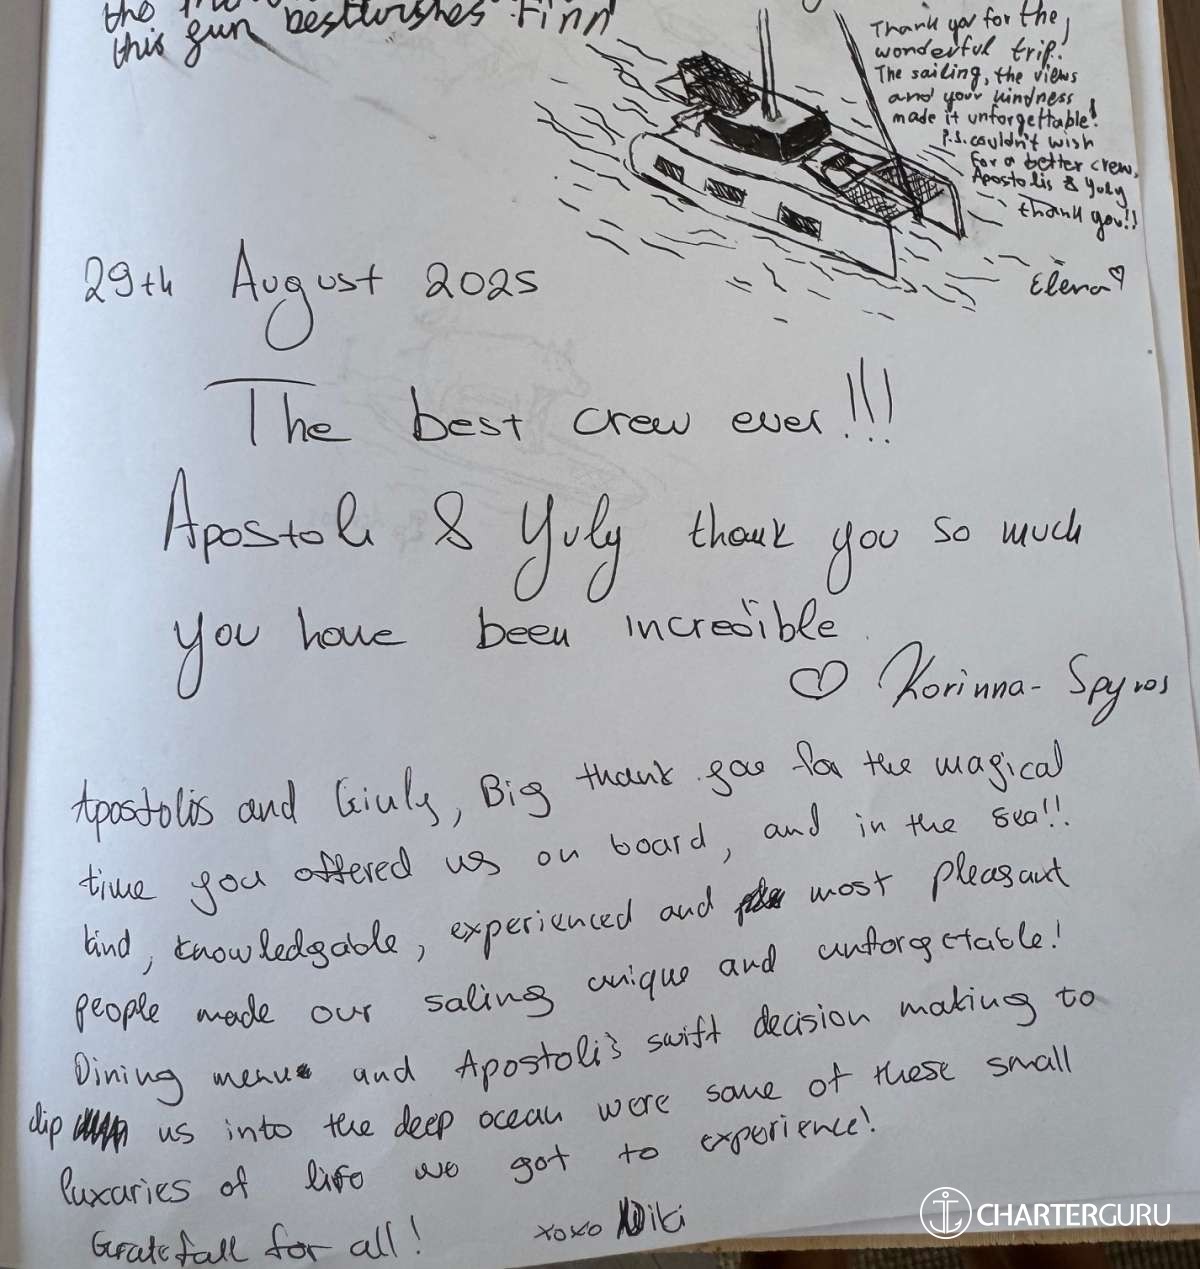 the
this gun bestwishes Finn
Thank you for the
wonderful trip!
The sailing, the views
and your kindness
made it unforgettable!
P.S. couldn't wish
for a better crew,
Apostolis & Yuly
thank you!!
Elena
29th August 2025
The best crew ever!!!
Apostoli & Yuly thank you so much
you have been incredible
Korinna - Spyros
Apostolis and Giuly, Big thank you for the magical
time you offered us on board, and in the sea!!
kind, knowledgable, experienced and most pleasant
people made our saling unique and unforgetable!
Dining menu and Apostoli's swift decision making to
dip us into the deep ocean were some of these small
luxaries of life we got to experience!
Gratefall for all! xoxo Niki
CHARTERGURU